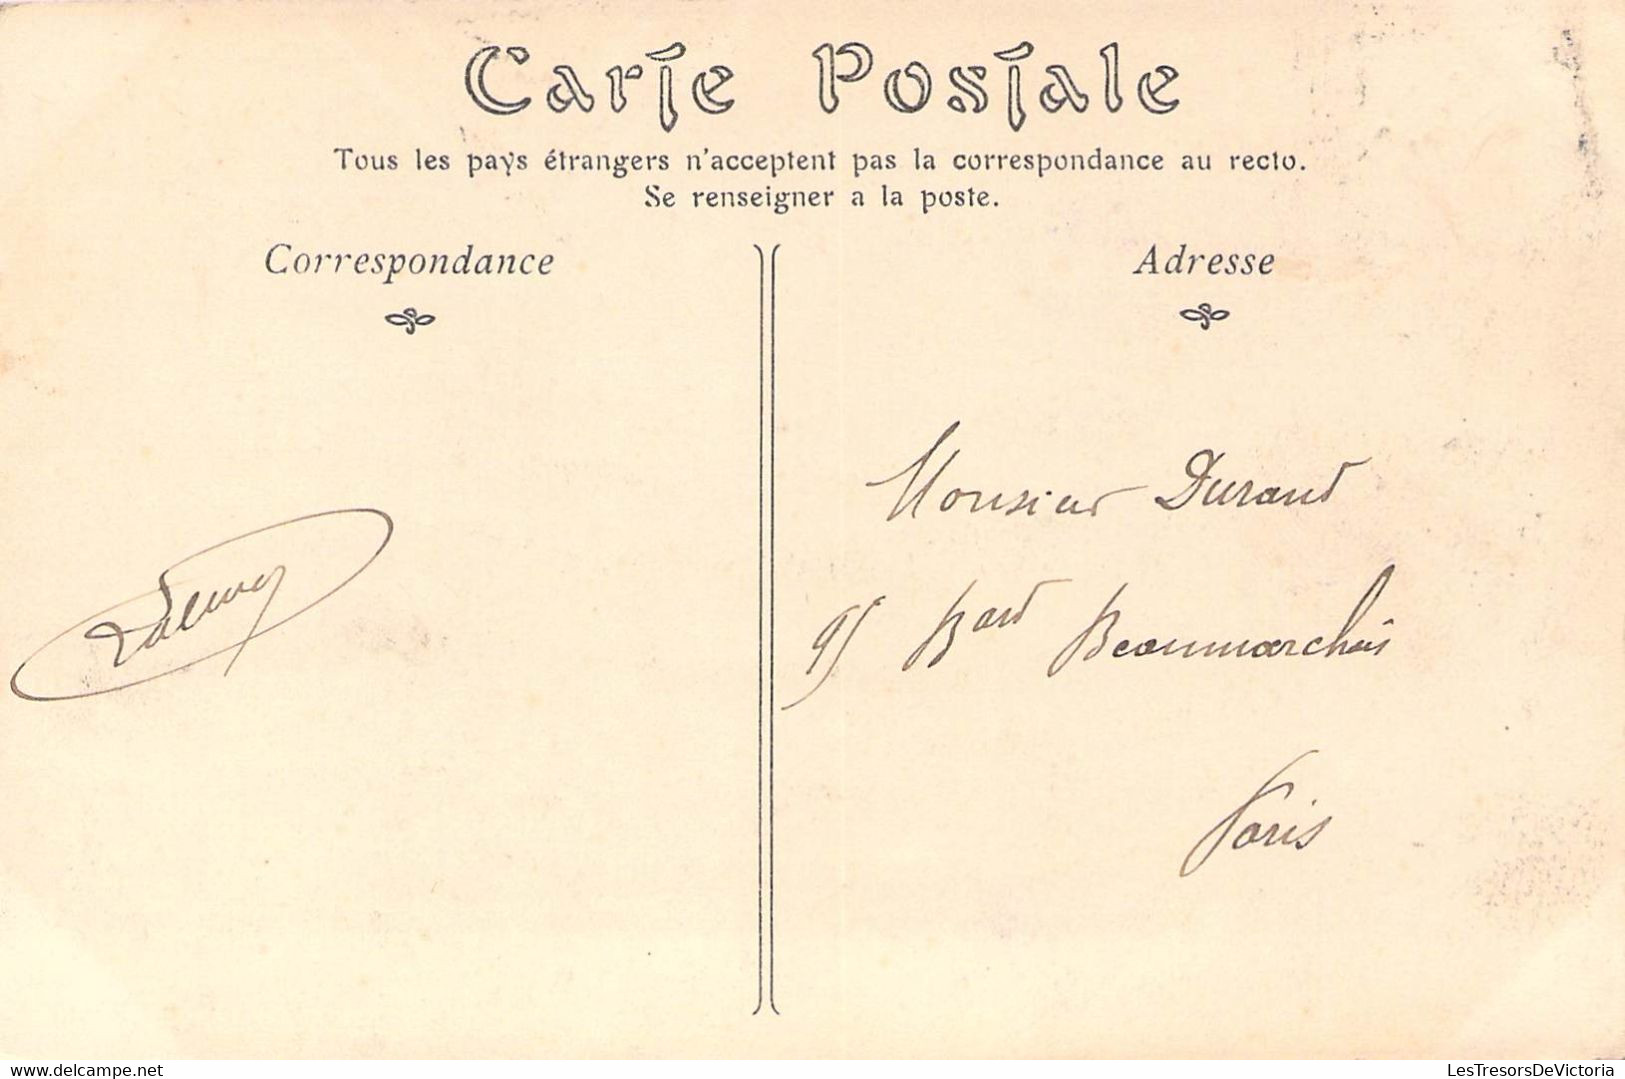 Carte Postale
Tous les pays étrangers n'acceptent pas la correspondance au recto.
Se renseigner a la poste.
Correspondance
Adresse
Monsieur Durand
95 Bard Beaumarchais
Paris
delcampe.net
LesTresorsDeVictoria